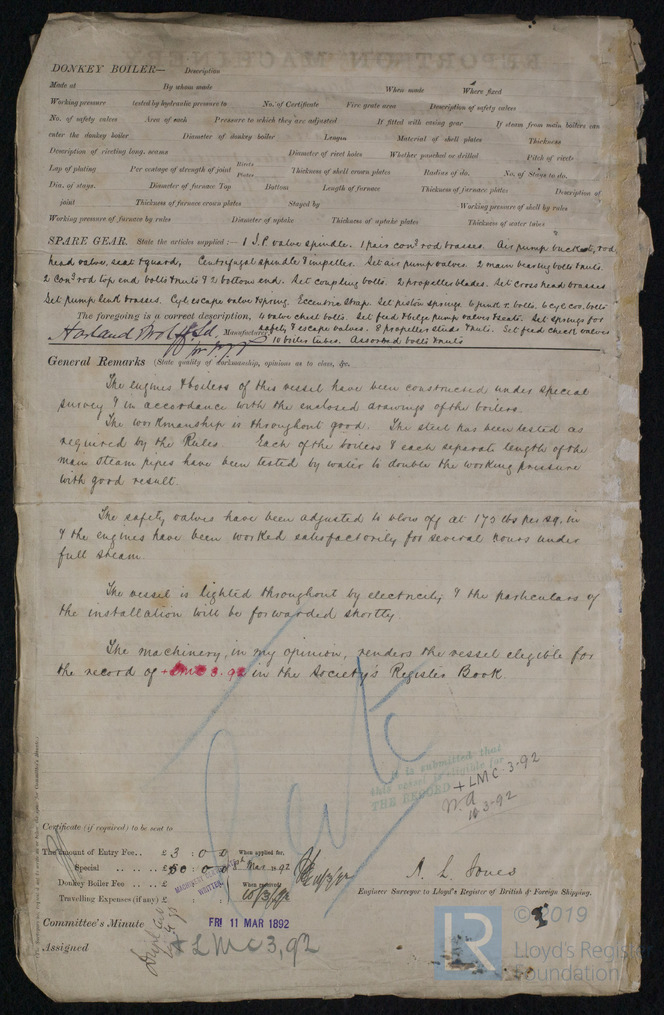 DONKEY BOILER— Description
Made at By whom made When made Where fixed
Working pressure tested by hydraulic pressure to No. of Certificate Fire grate area Description of safety valves
No. of safety valves Area of each Pressure to which they are adjusted If fitted with easing gear If steam from main boilers can
enter the donkey boiler Diameter of donkey boiler Length Material of shell plates Thickness
Description of riveting long. seams Diameter of rivet holes Whether punched or drilled Pitch of rivets
Lap of plating Per centage of strength of joint Rivets Plates Thickness of shell crown plates Radius of do. No. of Stays to do.
Dia. of stays. Diameter of furnace Top Bottom Length of furnace Thickness of furnace plates Description of
joint Thickness of furnace crown plates Stayed by Working pressure of shell by rules
Working pressure of furnace by rules Diameter of uptake Thickness of uptake plates Thickness of water tubes
SPARE GEAR. State the articles supplied:— 1 I.P valve spindle. 1 pair con? rod brasses. Air pump bucket, rod
head valve, seat & guard, Centrifugal spindle & impeller. Set air pump valves. 2 main bearing bolts & nuts.
2 con? rod top end bolts & nuts & 2 bottom end. Set coupling bolts. 2 propeller blades. Set cross head brasses
Set pump link brasses. Cyl escape valve & spring. Eccentric strap. Set piston springs 6 junk r. bolts. 6 cyl cov. bolts
The foregoing is a correct description, 4 valve chest bolts. Set feed & bilge pump valves & seats. Set springs for
Harland & Wolff Ld. Manufacturer. safety & escape valves. 8 propeller studs & nuts. Set feed check valves
10 boiler tubes. Assorted bolts & nuts
General Remarks (State quality of workmanship, opinions as to class, &c.
The engines & boilers of this vessel have been constructed under special
survey & in accordance with the enclosed drawings of the boilers.
The workmanship is throughout good. The steel has been tested as
required by the Rules. Each of the boilers & each separate length of the
main steam pipes have been tested by water to double the working pressure
with good result.
The safety valves have been adjusted to blow off at 175 lbs per sq. in
& the engines have been worked satisfactorily for several hours under
full steam.
The vessel is lighted throughout by electricity & the particulars of
the installation will be forwarded shortly.
The machinery, in my opinion, renders the vessel eligible for
the record of + LMC 3.92 in the Society's Register Book.
It is submitted that
this vessel is eligible for
THE RECORD + LMC 3-92
10-3-92
Certificate (if required) to be sent to
The amount of Entry Fee.. £ 3 : 0 : 0 When applied for,
Special .. £ 50 : 0 : 0 Mar 1892
Donkey Boiler Fee .. £ When received,
Travelling Expenses (if any) £ 10/3/92
MACHINERY CERTIFICATE WRITTEN.
A. L. Jones
Engineer Surveyor to Lloyd's Register of British & Foreign Shipping.
Committee's Minute FRI 11 MAR 1892
Assigned + LMC 3,92
LR © 2019
Lloyd's Register
Foundation